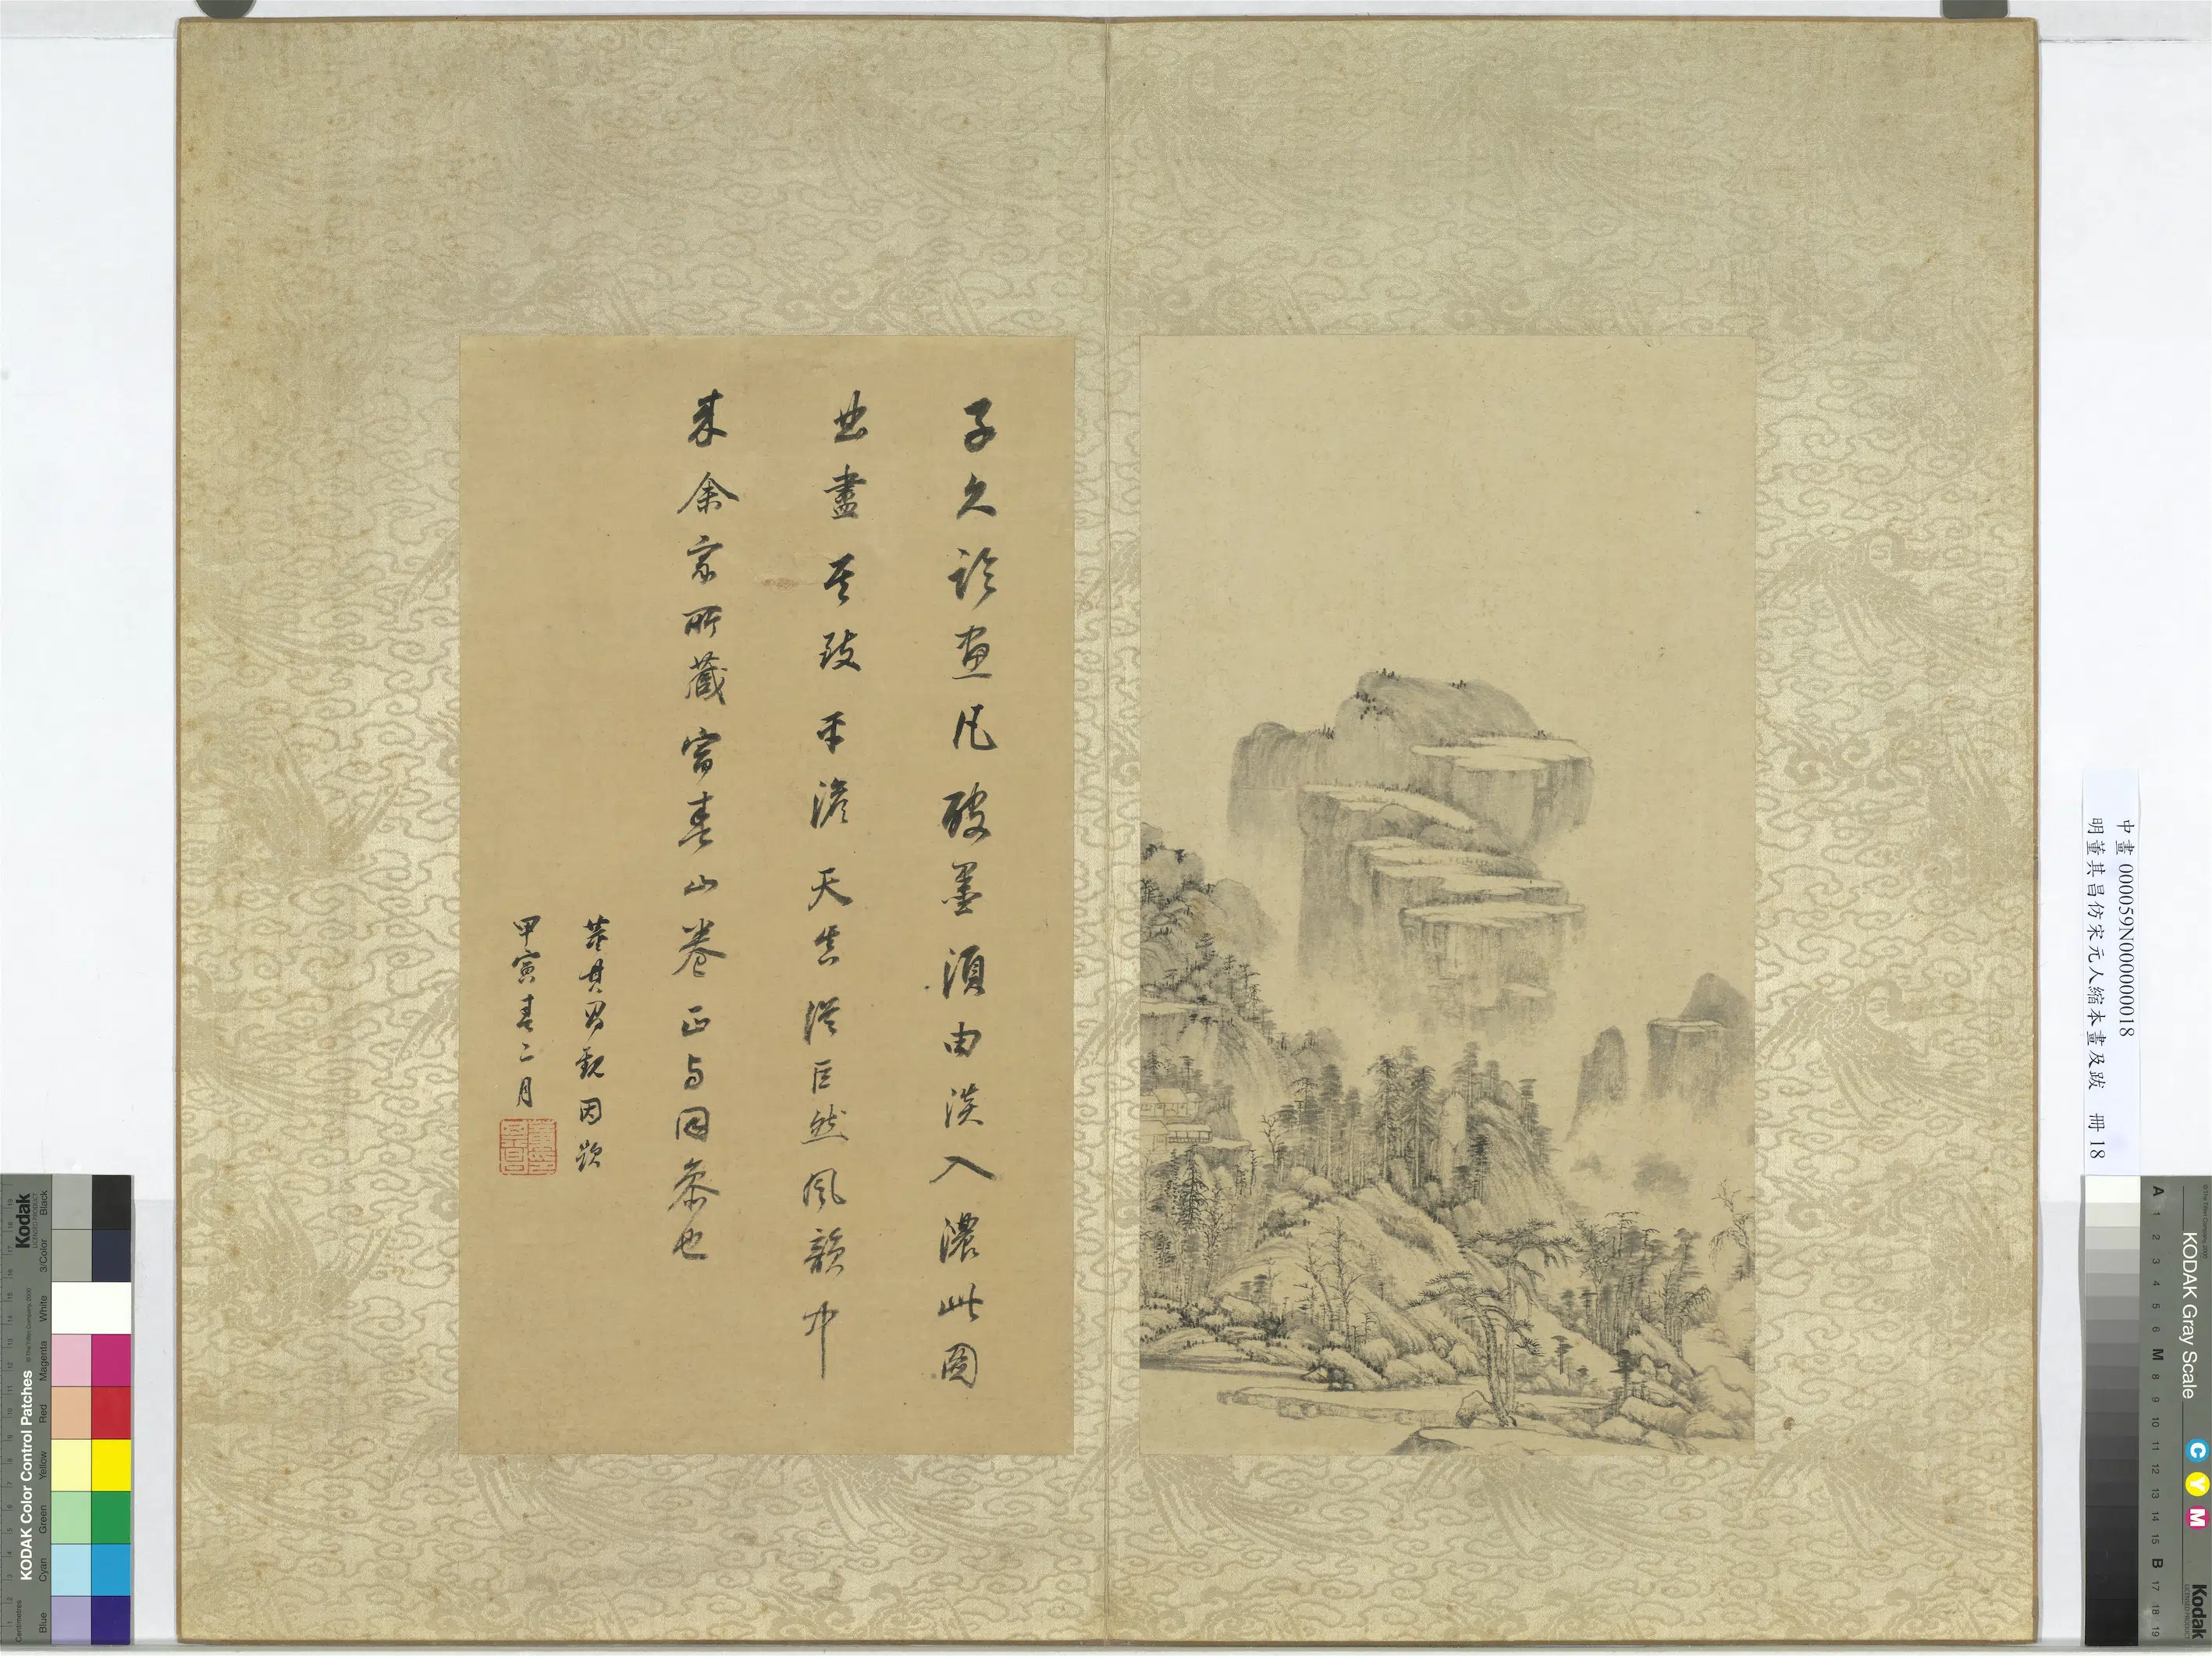 子久論畫凡破墨須由淡入濃此圖
曲盡其致平澹天真從巨然風韻中
來余家所藏富春山卷正与同參也
董其昌觀因題
甲寅春二月
中畫 000059N000000018
明董其昌仿宋元人縮本畫及跋 冊 18
KODAK Color Control Patches
Kodak
LICENSED PRODUCT
© The Tiffen Company, 2000
Centimetres
Blue
Cyan
Green
Yellow
Red
Magenta
White
3/Color
Black
KODAK Gray Scale
C
Y
M
Kodak
LICENSED PRODUCT
A 1 2 3 4 5 6 M 8 9 10 11 12 13 14 15 B 17 18 19